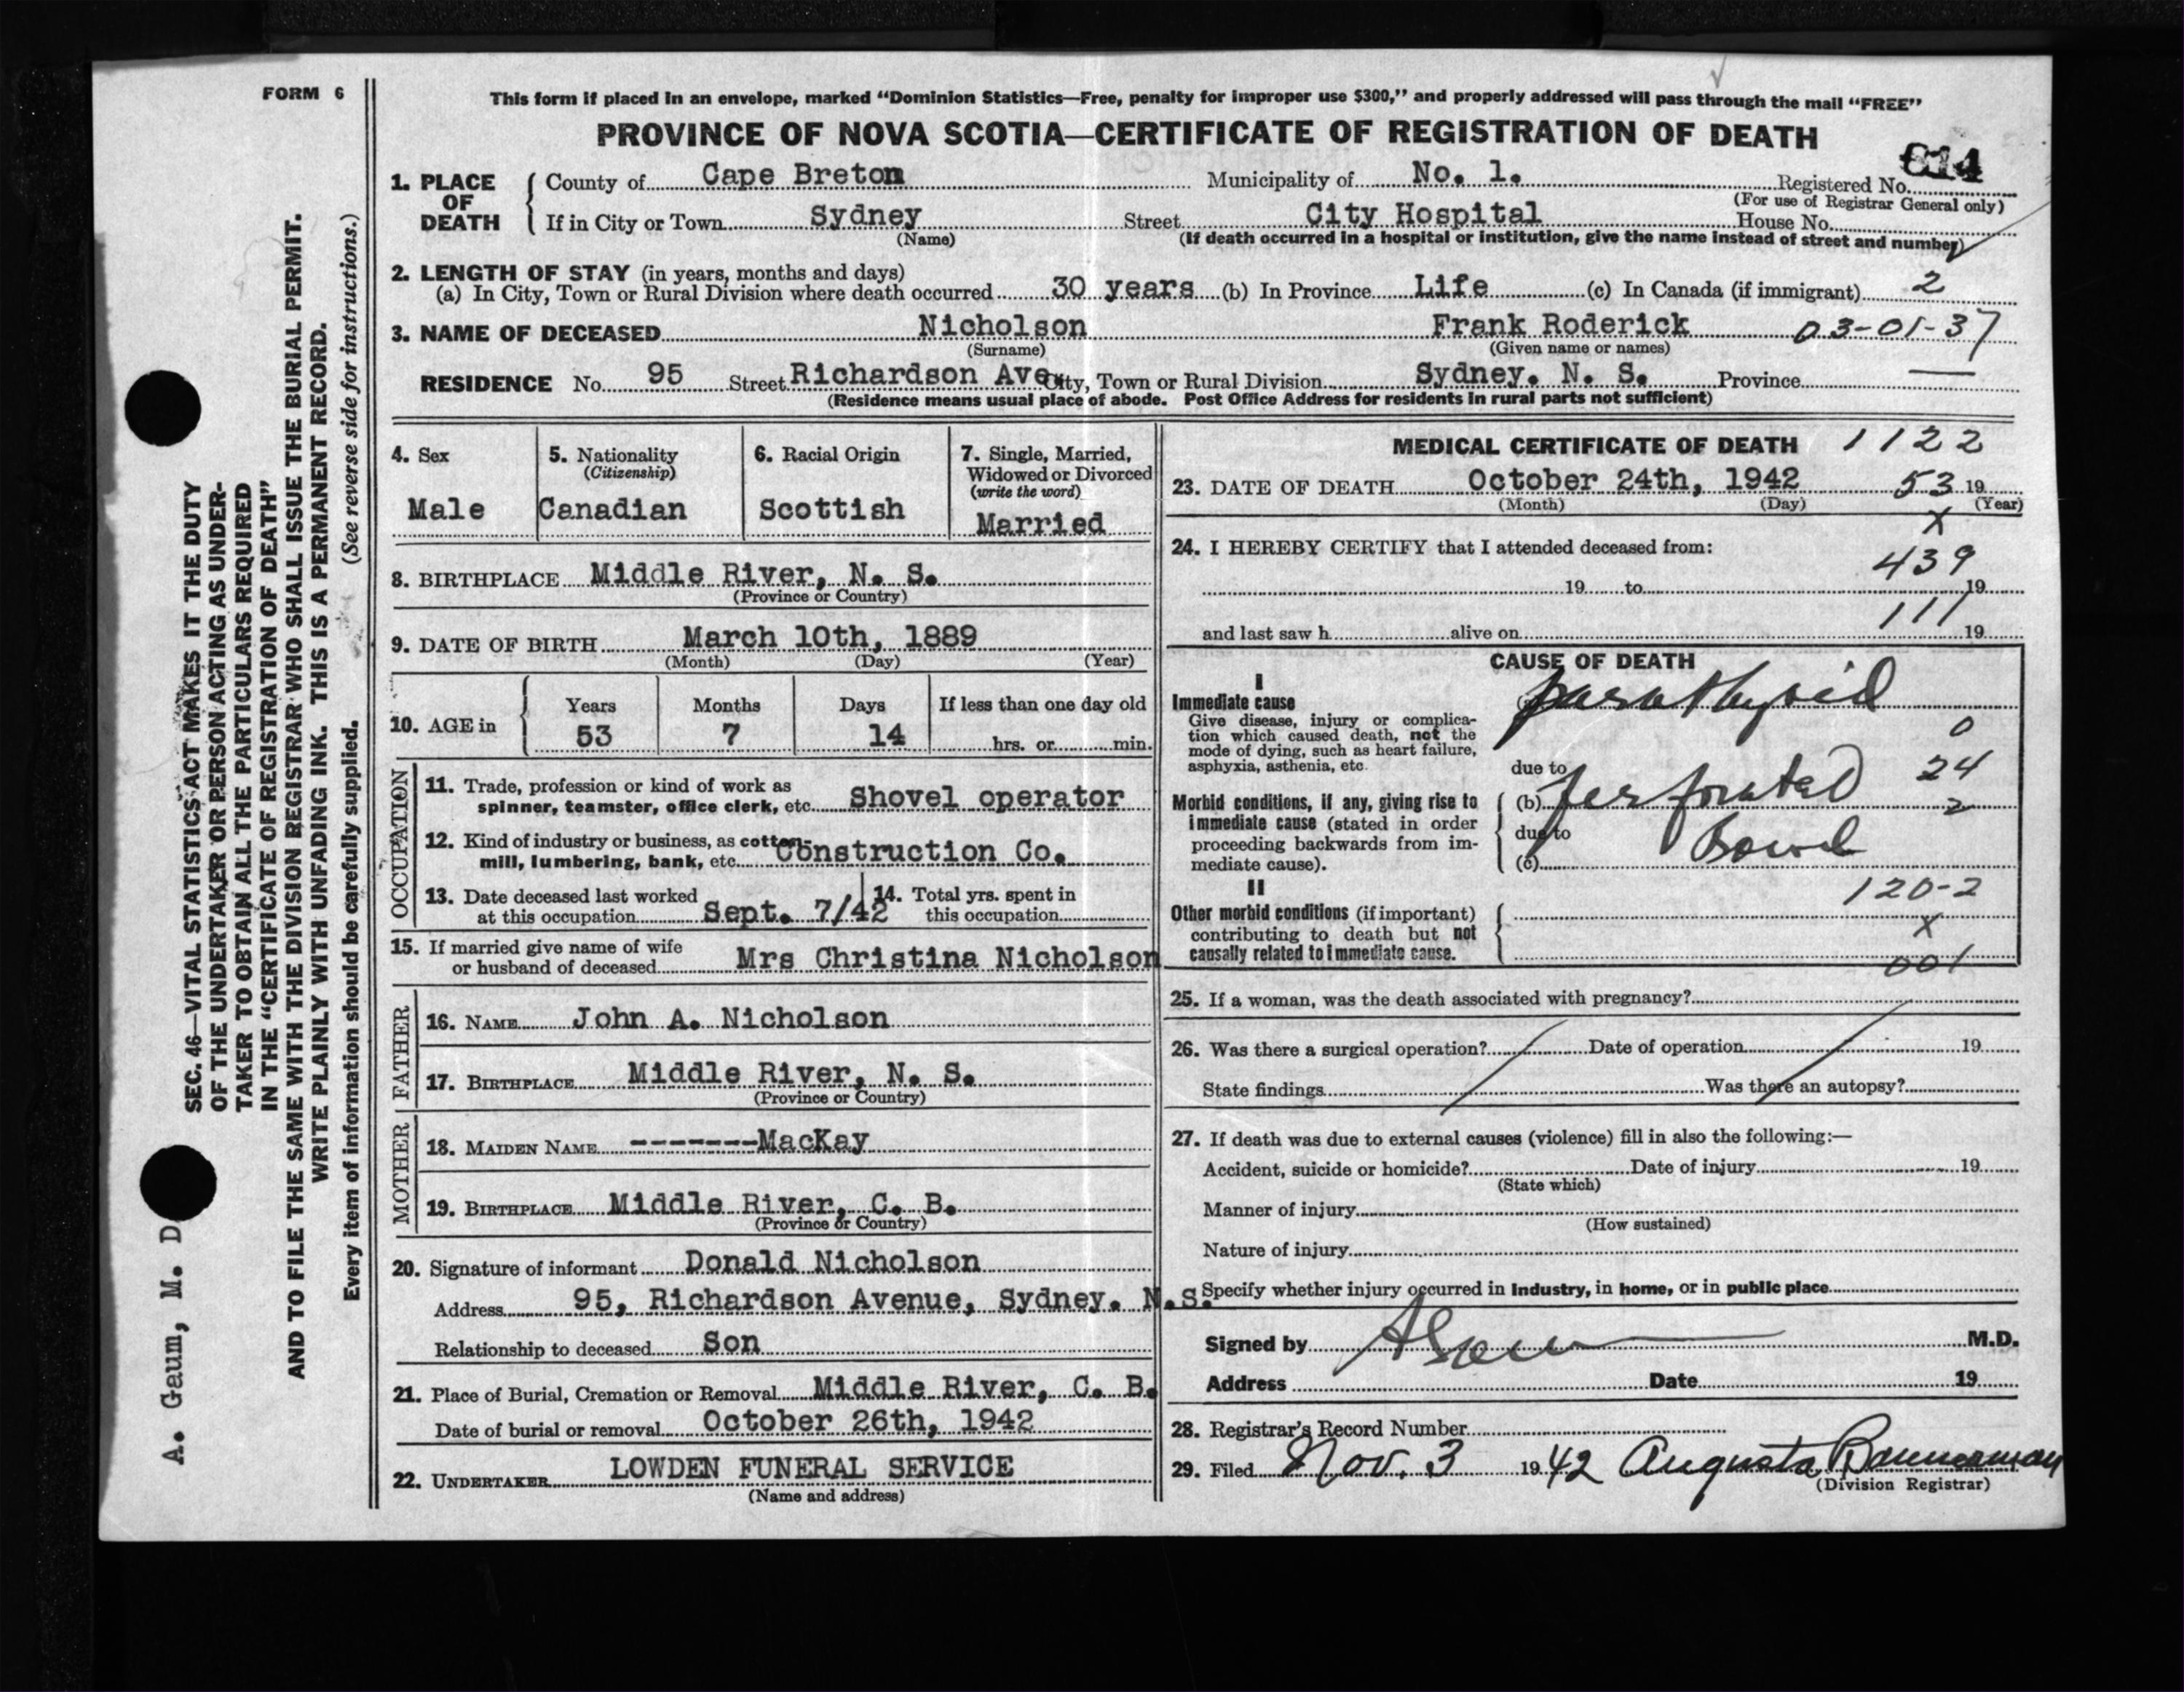 FORM 6
This form if placed in an envelope, marked “Dominion Statistics—Free, penalty for improper use $300,” and properly addressed will pass through the mail “FREE”
PROVINCE OF NOVA SCOTIA—CERTIFICATE OF REGISTRATION OF DEATH
1. PLACE OF DEATH { County of Cape Breton Municipality of No. 1. Registered No.
(For use of Registrar General only)
If in City or Town Sydney Street City Hospital House No.
(Name) (If death occurred in a hospital or institution, give the name instead of street and number)
2. LENGTH OF STAY (in years, months and days)
(a) In City, Town or Rural Division where death occurred 30 years (b) In Province Life (c) In Canada (if immigrant) 2
3. NAME OF DECEASED Nicholson Frank Roderick 03-01-37
(Surname) (Given name or names)
RESIDENCE No. 95 Street Richardson Ave. City, Town or Rural Division Sydney. N. S. Province —
(Residence means usual place of abode. Post Office Address for residents in rural parts not sufficient)
4. Sex
Male
5. Nationality
(Citizenship)
Canadian
6. Racial Origin
Scottish
7. Single, Married,
Widowed or Divorced
(write the word)
Married
8. BIRTHPLACE Middle River, N. S.
(Province or Country)
9. DATE OF BIRTH March 10th, 1889
(Month) (Day) (Year)
10. AGE in { Years Months Days If less than one day old
53 7 14 hrs. or min.
OCCUPATION
11. Trade, profession or kind of work as
spinner, teamster, office clerk, etc. Shovel operator
12. Kind of industry or business, as cotton-
mill, lumbering, bank, etc. Construction Co.
13. Date deceased last worked
at this occupation Sept. 7/42
14. Total yrs. spent in
this occupation
15. If married give name of wife
or husband of deceased Mrs Christina Nicholson
FATHER
16. NAME John A. Nicholson
17. BIRTHPLACE Middle River, N. S.
(Province or Country)
MOTHER
18. MAIDEN NAME -------MacKay
19. BIRTHPLACE Middle River, C. B.
(Province or Country)
20. Signature of informant Donald Nicholson
Address 95, Richardson Avenue, Sydney. N.S.
Relationship to deceased Son
21. Place of Burial, Cremation or Removal Middle River, C. B.
Date of burial or removal October 26th, 1942
22. UNDERTAKER LOWDEN FUNERAL SERVICE
(Name and address)
MEDICAL CERTIFICATE OF DEATH 1122
23. DATE OF DEATH October 24th, 1942 53 19
(Month) (Day) (Year)
X
24. I HEREBY CERTIFY that I attended deceased from:
439
19 to 19
111
and last saw h alive on 19
CAUSE OF DEATH
I
Immediate cause parathyoid
Give disease, injury or complica-
tion which caused death, not the
mode of dying, such as heart failure,
asphyxia, asthenia, etc.
0
due to 24
Morbid conditions, if any, giving rise to
immediate cause (stated in order
proceeding backwards from im-
mediate cause).
(b) perforated 2
due to Bowel
(c)
II
120-2
Other morbid conditions (if important)
contributing to death but not
causally related to immediate cause.
X
001
25. If a woman, was the death associated with pregnancy?
26. Was there a surgical operation? Date of operation 19
State findings Was there an autopsy?
27. If death was due to external causes (violence) fill in also the following:—
Accident, suicide or homicide? Date of injury 19
(State which)
Manner of injury
(How sustained)
Nature of injury
Specify whether injury occurred in Industry, in home, or in public place
Signed by A Gaum M.D.
Address Date 19
28. Registrar's Record Number
29. Filed Nov. 3 1942 Augusta Bannerman
(Division Registrar)
SEC. 46—VITAL STATISTICS ACT MAKES IT THE DUTY
OF THE UNDERTAKER OR PERSON ACTING AS UNDER-
TAKER TO OBTAIN ALL THE PARTICULARS REQUIRED
IN THE “CERTIFICATE OF REGISTRATION OF DEATH”
AND TO FILE THE SAME WITH THE DIVISION REGISTRAR WHO SHALL ISSUE THE BURIAL PERMIT.
WRITE PLAINLY WITH UNFADING INK. THIS IS A PERMANENT RECORD.
Every item of information should be carefully supplied. (See reverse side for instructions.)
A. Gaum, M. D